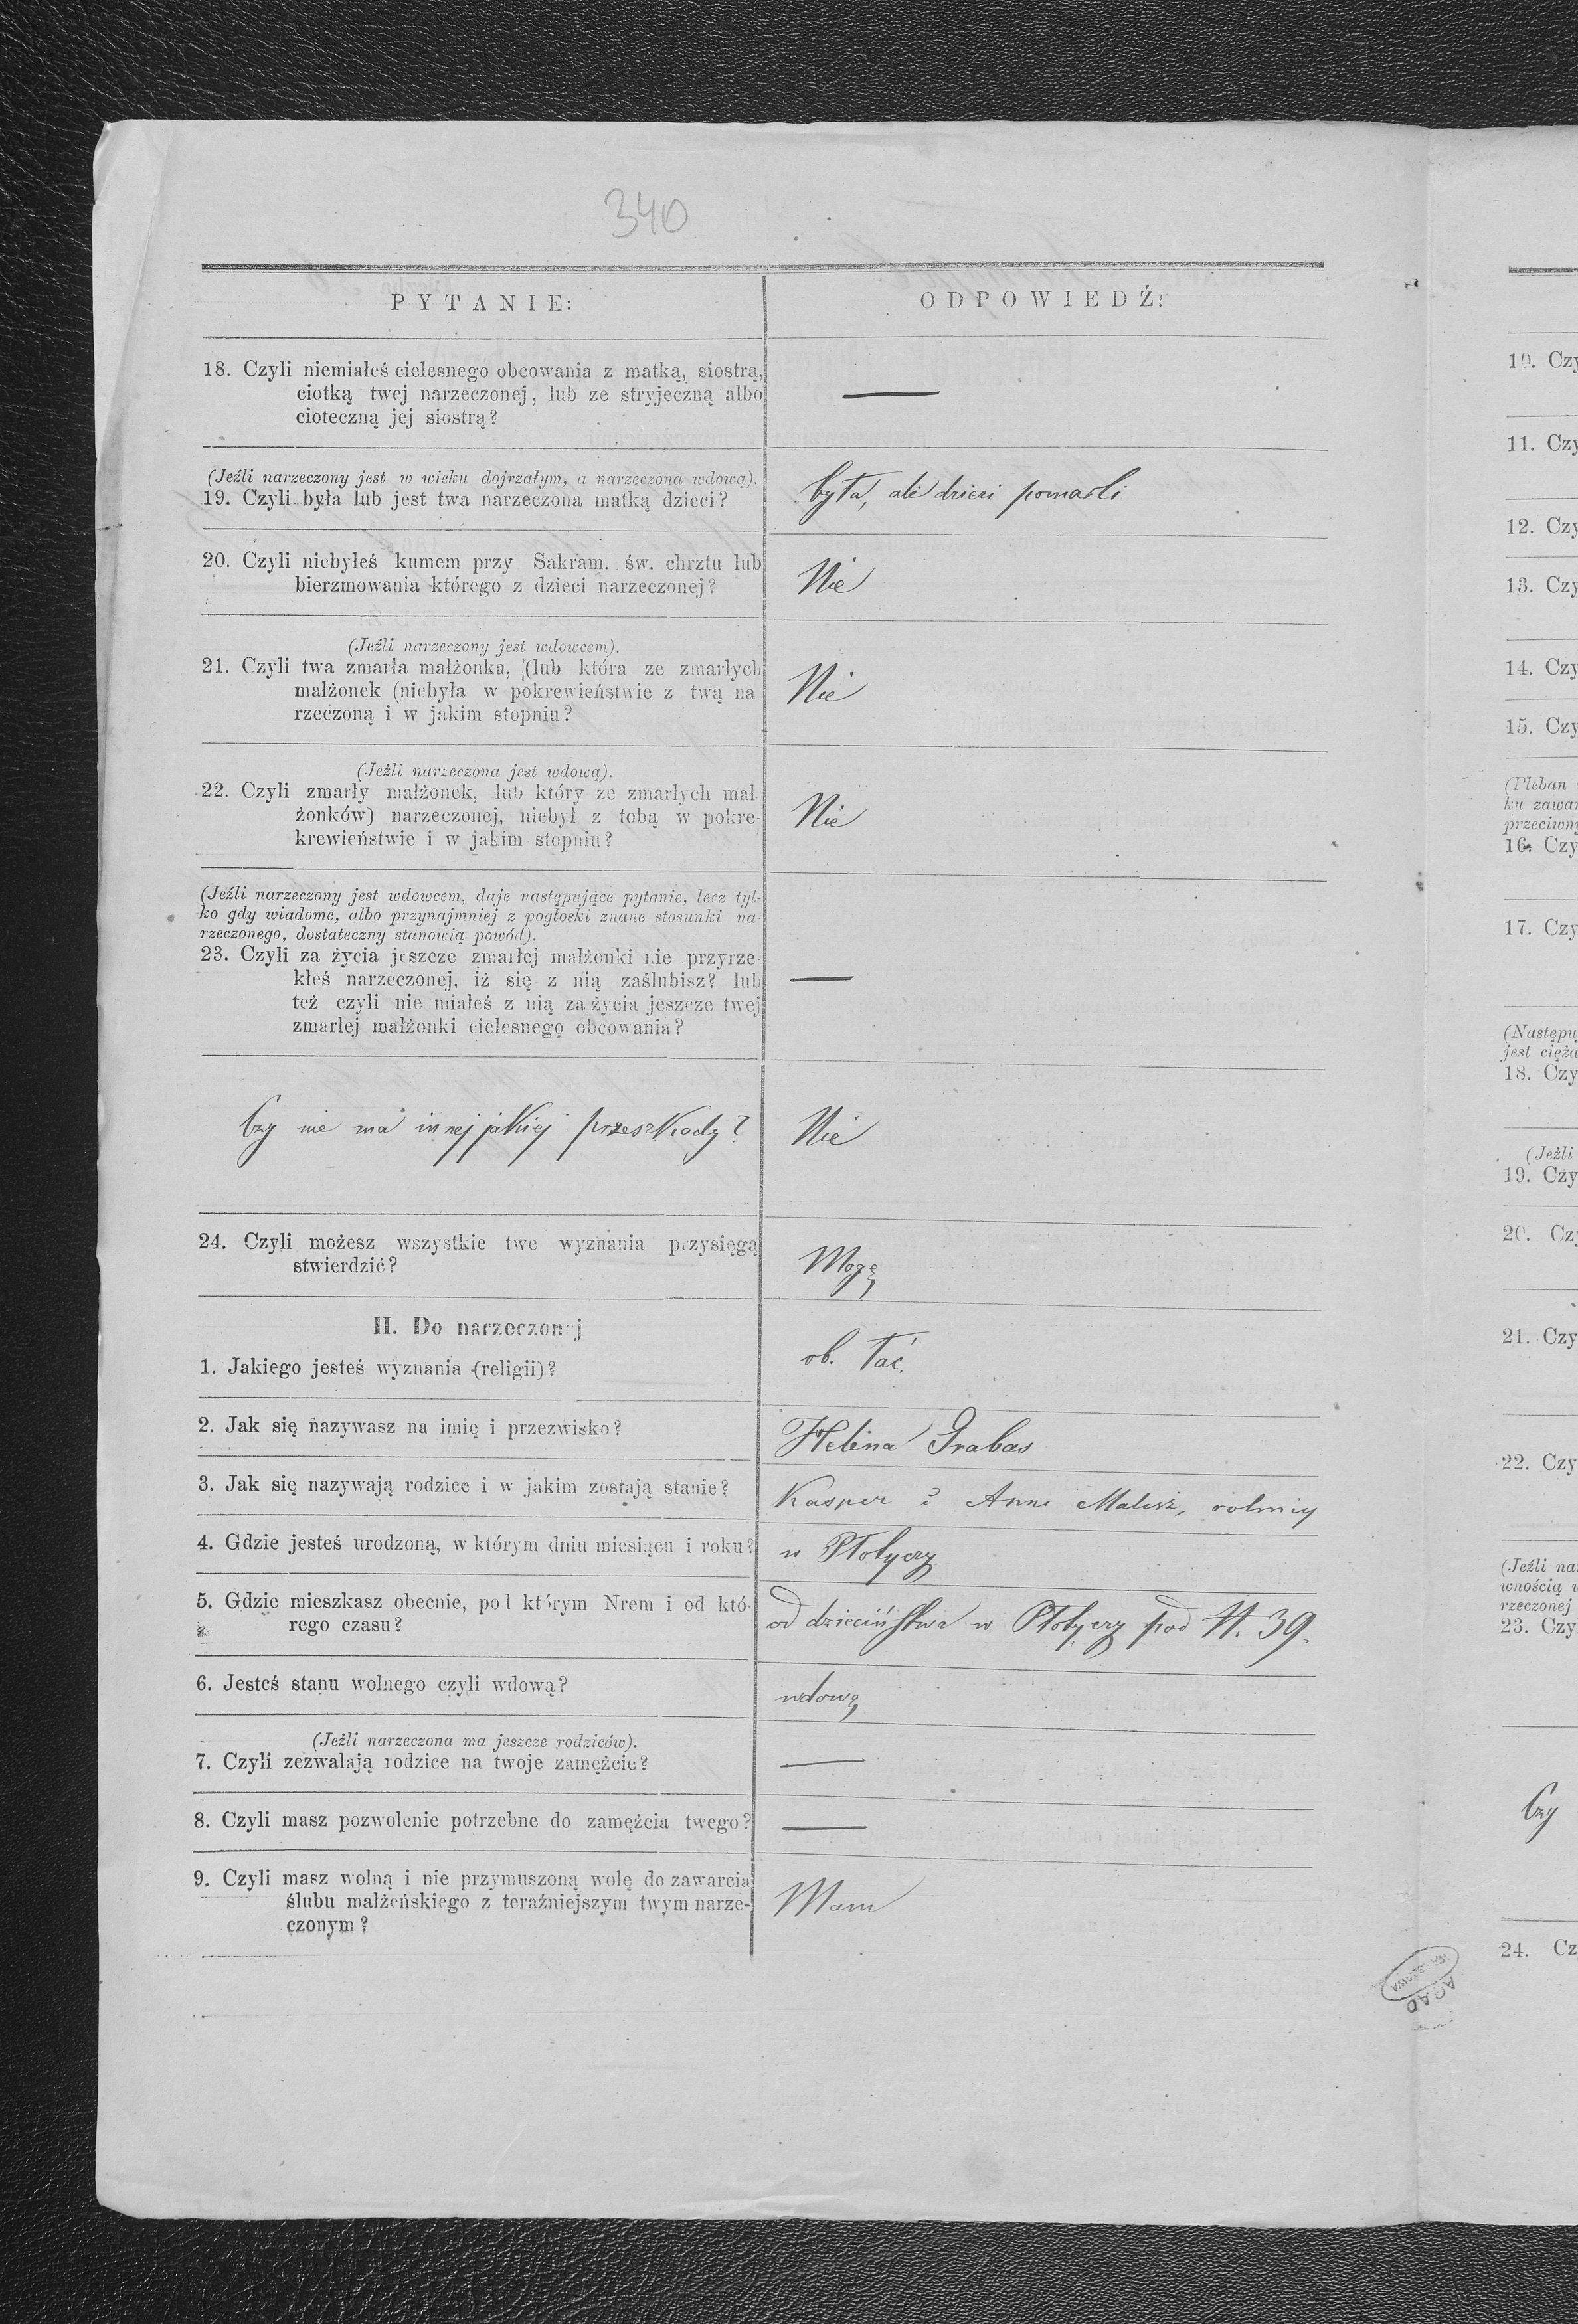 340
PYTANIE:
ODPOWIEDŹ:
18. Czyli niemiałeś cielesnego obcowania z matką, siostrą,
ciotką twej narzeczonej, lub ze stryjeczną albo
cioteczną jej siostrą?
—
(Jeźli narzeczony jest w wieku dojrzałym, a narzeczona wdową).
19. Czyli była lub jest twa narzeczona matką dzieci?
była, ale dzieci pomarli
20. Czyli niebyłeś kumem przy Sakram. św. chrztu lub
bierzmowania którego z dzieci narzeczonej?
Nie
(Jeźli narzeczony jest wdowcem).
21. Czyli twa zmarła małżonka, (lub która ze zmarłych
małżonek (niebyła w pokrewieństwie z twą na
rzeczoną i w jakim stopniu?
Nie
(Jeźli narzeczona jest wdową).
22. Czyli zmarły małżonek, lub który ze zmarłych mał
żonków) narzeczonej, niebył z tobą w pokre-
krewieństwie i w jakim stopniu?
Nie
(Jeźli narzeczony jest wdowcem, daje następujące pytanie, lecz tyl-
ko gdy wiadome, albo przynajmniej z pogłoski znane stosunki na-
rzeczonego, dostateczny stanowią powód).
23. Czyli za życia jeszcze zmarłej małżonki nie przyrze-
kłeś narzeczonej, iż się z nią zaślubisz? lub
też czyli nie miałeś z nią za życia jeszcze twej
zmarłej małżonki cielesnego obcowania?
—
Czy nie ma innej jakiej przeszkody?
Nie
24. Czyli możesz wszystkie twe wyznania przysięgą
stwierdzić?
Mogę
II. Do narzeczonej
1. Jakiego jesteś wyznania (religii)?
ob. łać.
2. Jak się nazywasz na imię i przezwisko?
Helena Grabas
3. Jak się nazywają rodzice i w jakim zostają stanie?
Kasper i Anna Malisz, rolnicy
4. Gdzie jesteś urodzoną, w którym dniu miesiącu i roku?
w Płotyczy
5. Gdzie mieszkasz obecnie, pod którym Nrem i od któ-
rego czasu?
od dzieciństwa w Płotyczy pod N. 39.
6. Jesteś stanu wolnego czyli wdową?
wdową
(Jeżli narzeczona ma jeszcze rodziców).
7. Czyli zezwalają rodzice na twoje zamężcie?
—
8. Czyli masz pozwolenie potrzebne do zamężcia twego?
—
9. Czyli masz wolną i nie przymuszoną wolę do zawarcia
ślubu małżeńskiego z teraźniejszym twym narze-
czonym?
Mam
10. Czy
11. Czy
12. Czy
13. Czy
14. Czy
15. Czy
(Pleban
ku zawar
przeciwn
16. Czy
17. Czy
(Następu
jest cięża
18. Czy
(Jeżli
19. Czy
20. Cz
21. Czy
22. Czy
(Jeźli na
wnością
rzeczonej
23. Czy
Czy
24. Cz
AGAD
WARSZAWA